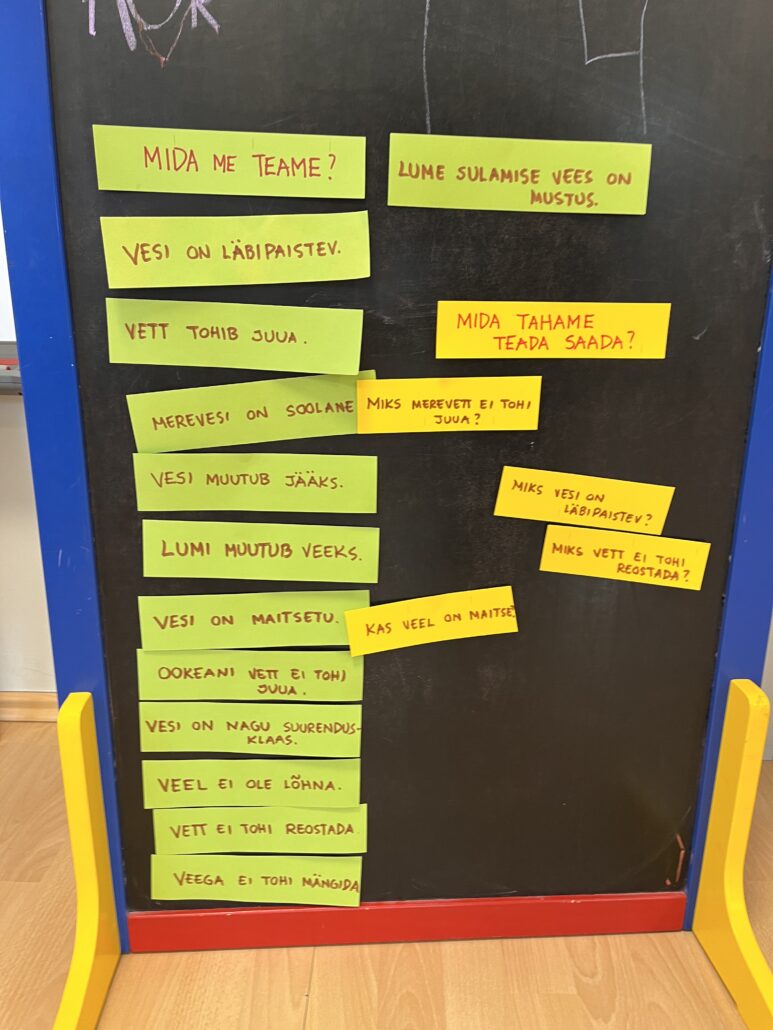 MIDA ME TEAME?
VESI ON LÄBIPAISTEV.
VETT TOHIB JUUA.
MEREVESI ON SOOLANE
VESI MUUTUB JÄÄKS.
LUMI MUUTUB VEEKS.
VESI ON MAITSETU.
OOKEANI VETT EI TOHI
JUUA.
VESI ON NAGU SUURENDUS-
KLAAS.
VEEL EI OLE LÕHNA.
VETT EI TOHI REOSTADA
VEEGA EI TOHI MÄNGIDA
LUME SULAMISE VEES ON
MUSTUS.
MIDA TAHAME
TEADA SAADA?
MIKS MEREVETT EI TOHI
JUUA?
MIKS VESI ON
LÄBIPAISTEV?
MIKS VETT EI TOHI
REOSTADA?
KAS VEEL ON MAITSE?